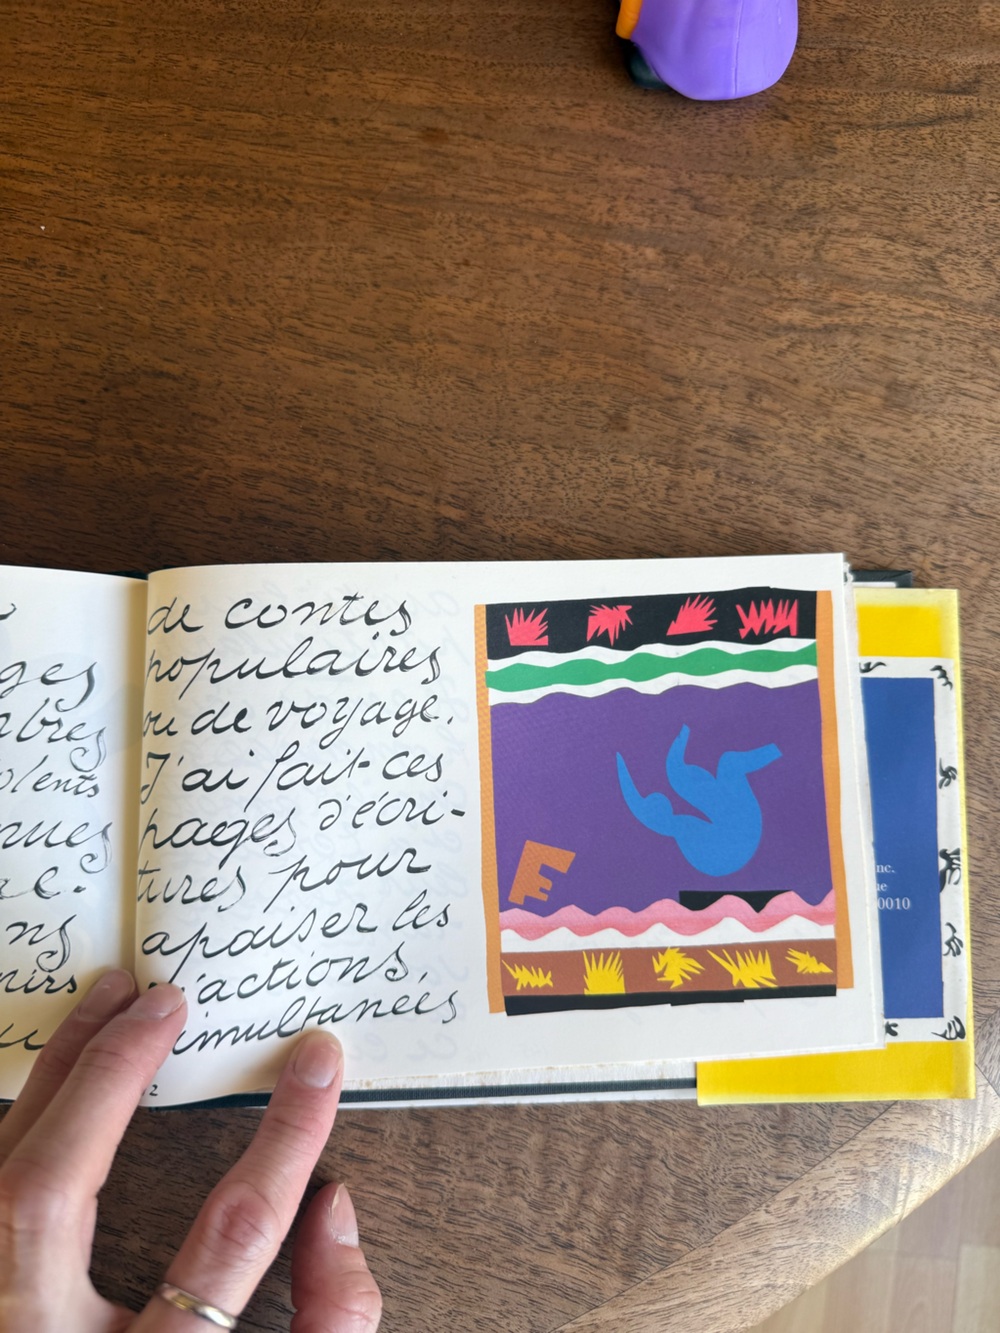 ges
bres
olents
nues
al.
ns
nirs
de contes
populaires
ou de voyage.
J'ai fait ces
pages d'écri-
tures pour
apaiser les
réactions,
simultanées
2
nc.
ue
0010